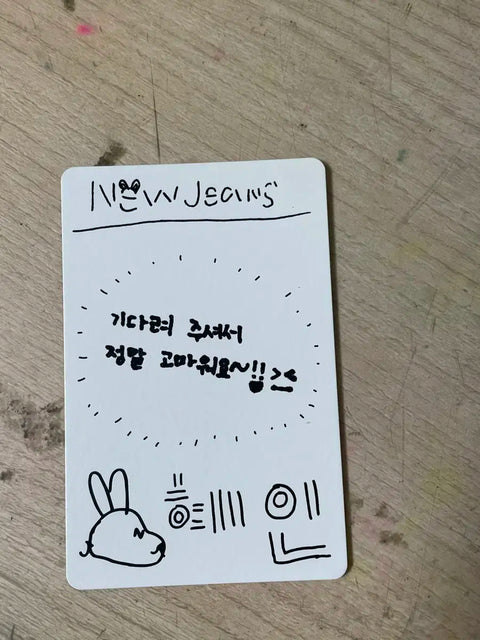 NEW JEANS
기다려 주셔서
정말 고마워요~!! >_<
혜인